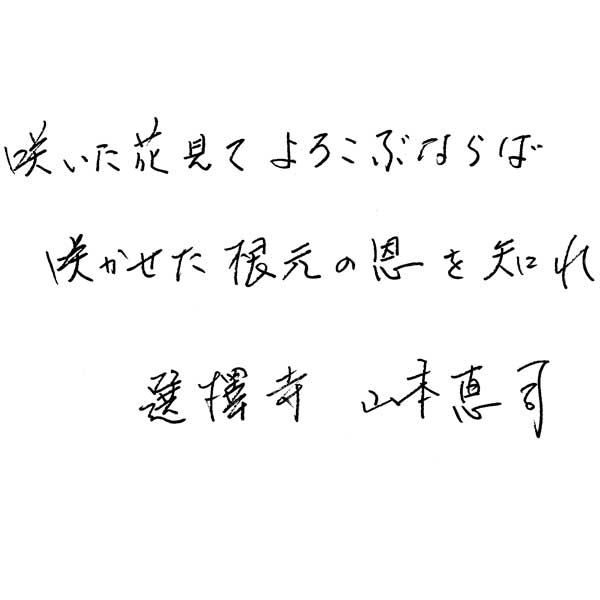 咲いた花見てよろこぶならば
咲かせた根元の恩を知れ
選擇寺 山本恵司